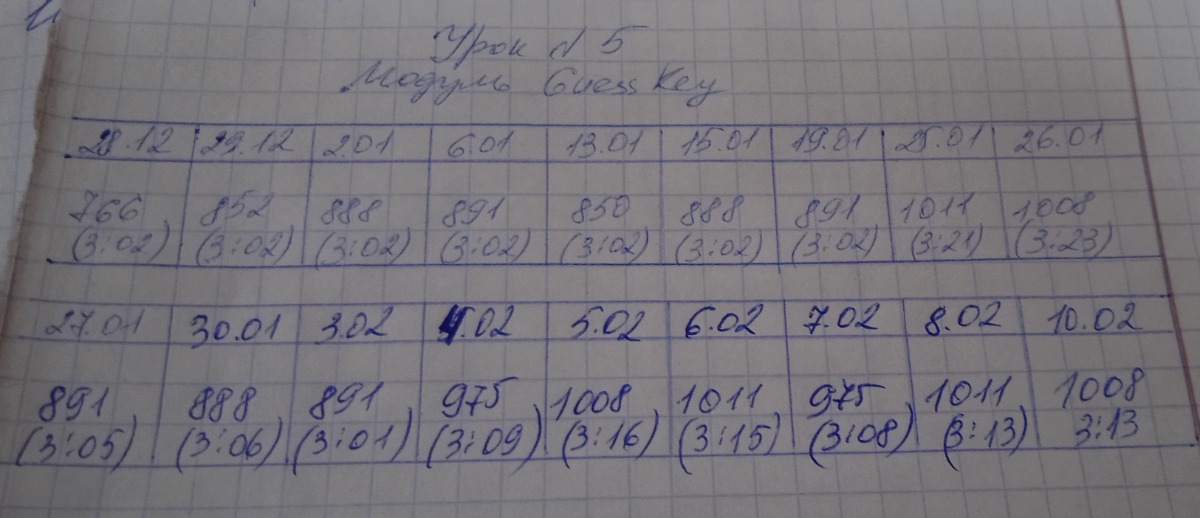 Урок N 5
Модуль Guess Key
28.12 29.12 2.01 6.01 13.01 15.01 19.01 25.01 26.01
766 852 888 891 850 888 891 1011 1008
(3:02) (3:02) (3:02) (3:02) (3:02) (3:02) (3:02) (3:21) (3:23)
27.01 30.01 3.02 4.02 5.02 6.02 7.02 8.02 10.02
891 888 891 975 1008 1011 975 1011 1008
(3:05) (3:06) (3:01) (3:09) (3:16) (3:15) (3:08) (3:13) 3:13